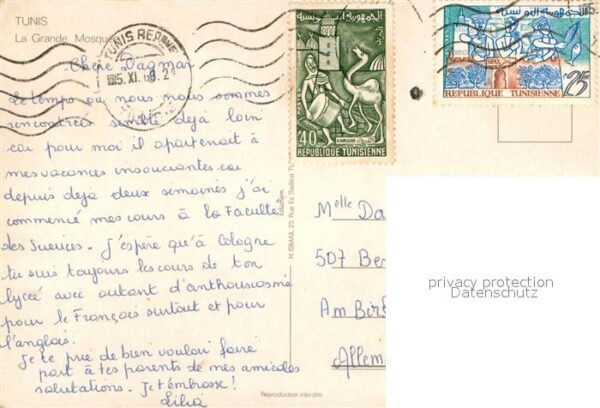 TUNIS
La Grande Mosquée
TUNIS REPQUE
5. XI. 68. 21
الجمهورية التونسية
40
KAIROUAN
REPUBLIQUE TUNISIENNE
الجمهورية التونسية
SFAX
25
REPUBLIQUE TUNISIENNE
Chère Dagmar
Le temps où nous nous sommes
rencontrés semble déjà loin
car pour moi il appartenait à
mes vacances insouciantes car
depuis déjà deux semaines j'ai
commencé mes cours à la Faculté
des Sciences. J'espère qu'à Cologne
tu suis toujours les cours de ton
lycée avec autant d'anthousiasme
pour le Français surtout et pour
l'anglais.
Je te prie de bien vouloir faire
part à tes parents de mes amicales
salutations. Je t'embrasse !
Lilia
H ISMAIL 23, Rue Es Sadikia
Melle Da
507 Ber
Am Birk
Allem
privacy protection
Datenschutz
Reproduction interdite